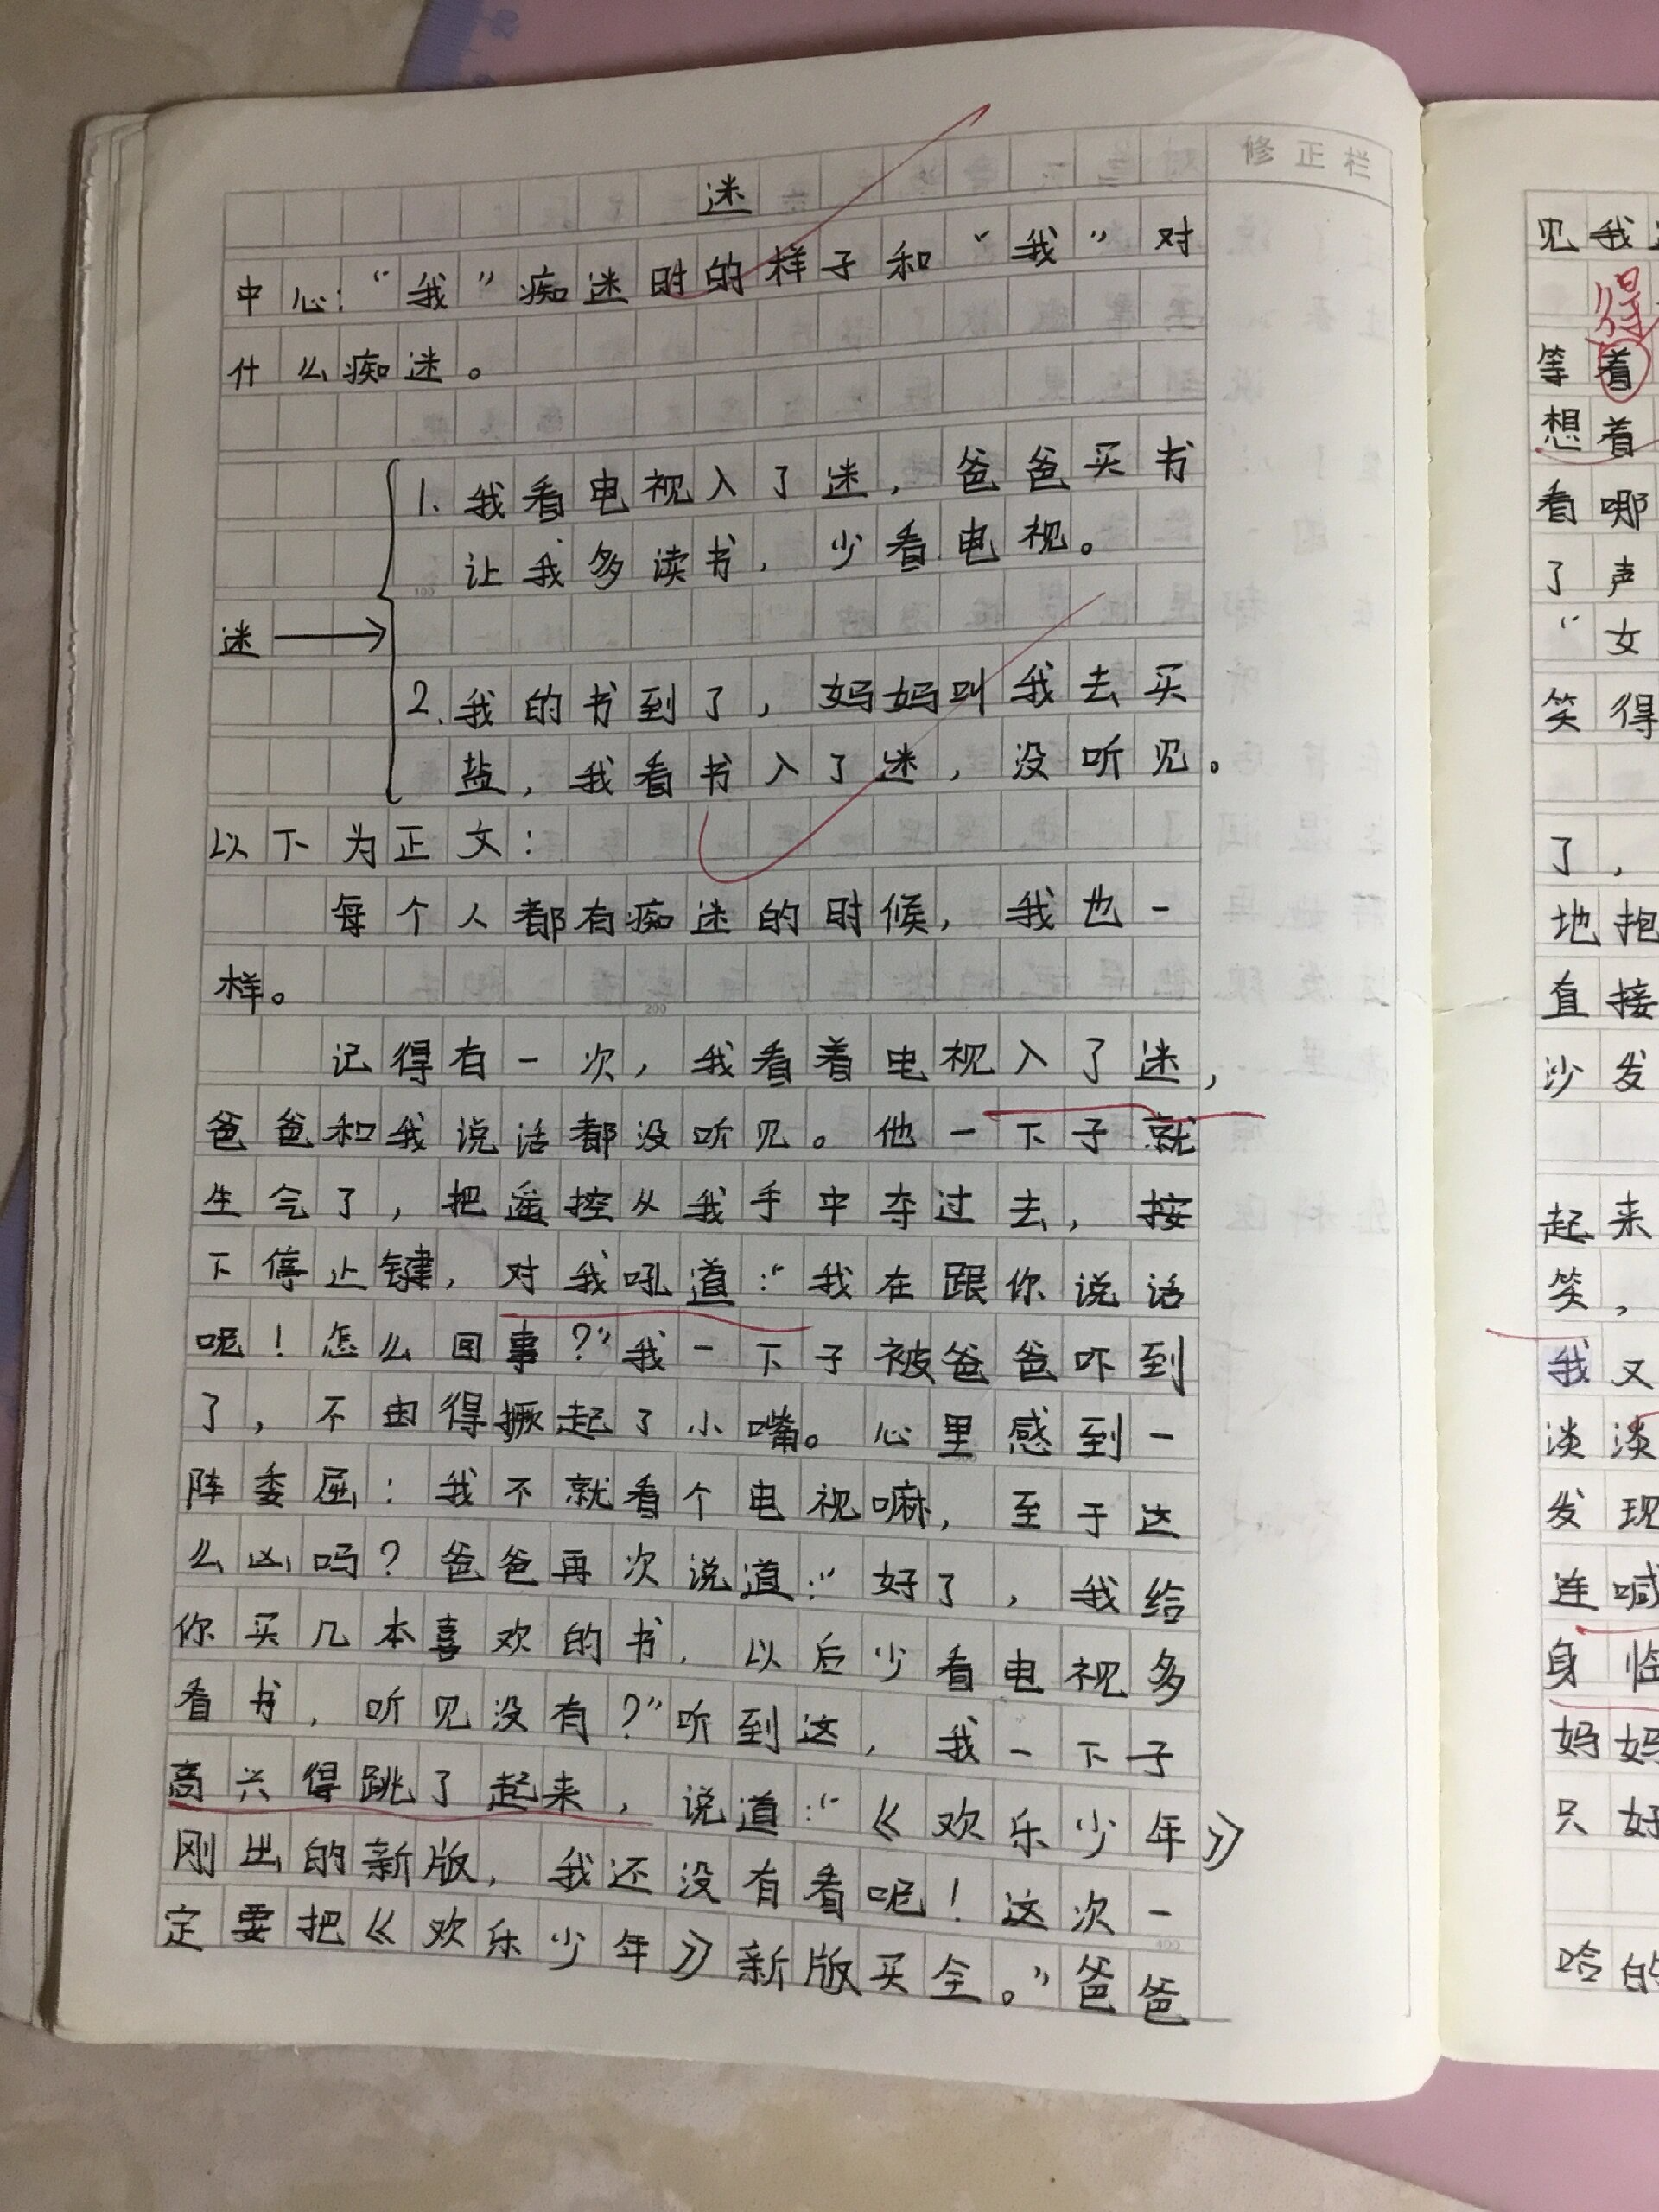 修正栏
迷
中心：“我”痴迷时的样子和“我”对
什么痴迷。
1.我看电视入了迷，爸爸买书
让我多读书，少看电视。
迷
2.我的书到了，妈妈叫我去买
盐，我看书入了迷，没听见。
以下为正文：
每个人都有痴迷的时候，我也一
样。
200
记得有一次，我看着电视入了迷，
爸爸和我说话都没听见。他一下子就
生气了，把遥控从我手中夺过去，按
下停止键，对我吼道：“我在跟你说话
呢！怎么回事？”我一下子被爸爸吓到
了，不由得撅起了小嘴。心里感到一
阵委屈：我不就看个电视嘛，至于这
么凶吗？爸爸再次说道：“好了，我给
你买几本喜欢的书，以后少看电视多
看书，听见没有？”听到这，我一下子
高兴得跳了起来，说道：“《欢乐少年》
刚出的新版，我还没有看呢！这次一
定要把《欢乐少年》新版买全。”爸爸
见我
得
等着
想着
看哪
了声
“女
笑得
了，
地抱
直接
沙发
起来
笑，
我又
淡淡
发现
连喊
身临
妈妈
只好
哈的